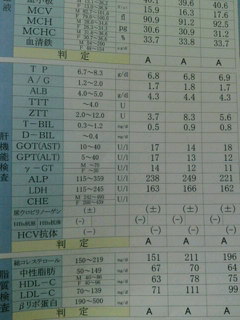 血小板 40.1 39.6 40.6
MCV fl 15.9 16.3 17.6
MCH 90.9 91.2 92.5
MCHC 30.6 30.9 31.2
血清鉄 33.7 33.8 33.7
判定 A A A
TP 6.7~8.3 g/dl 6.8 6.8 6.9
A/G 1.2~2.0 1.7 1.8 1.7
ALB 4.0~5.0 g/dl 4.3 4.4 4.3
TTT ~4.0 U
ZTT 2.0~12.0 U 3.7 8.3 5.6
T-BIL 0.3~1.2 mg/dl 0.5 0.9 0.8
D-BIL ~0.4 mg/dl
GOT(AST) 10~40 U/l 17 14 18
GPT(ALT) 5~40 U/l 17 13 12
γ-GT U/l 14 12 11
ALP 115~359 U/l 238 249 221
LDH 115~245 U/l 163 166 162
CHE U/l
尿ウロビリノーゲン (±) (±) (±)
HBs抗原 (-) (-) (-)
HCV抗体 (-) (-)
判定 A A A
総コレステロール 150~219 mg/dl 151 211 196
中性脂肪 50~149 mg/dl 67 70 64
HDL-C mg/dl 63 78 75
LDL-C 70~139 mg/dl 71 111 99
βリポ蛋白 190~500 mg/dl
判定 A A A
肝機能検査
脂質検査